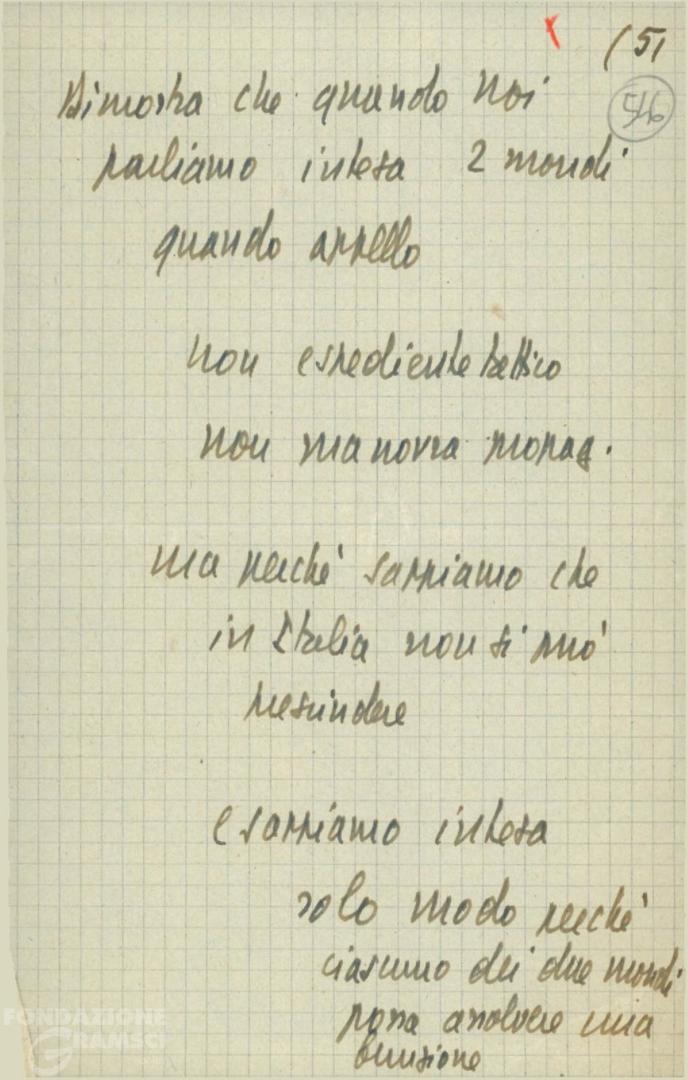 (51
546
Dimostra che quando noi
parliamo intesa 2 mondi
quando appello
non espediente tattico
non manovra propag.
ma perché sappiamo che
in Italia non si può
prescindere
e sappiamo intesa
solo modo perché
ciascuno dei due mondi
possa assolvere una
funzione
FONDAZIONE
GRAMSCI